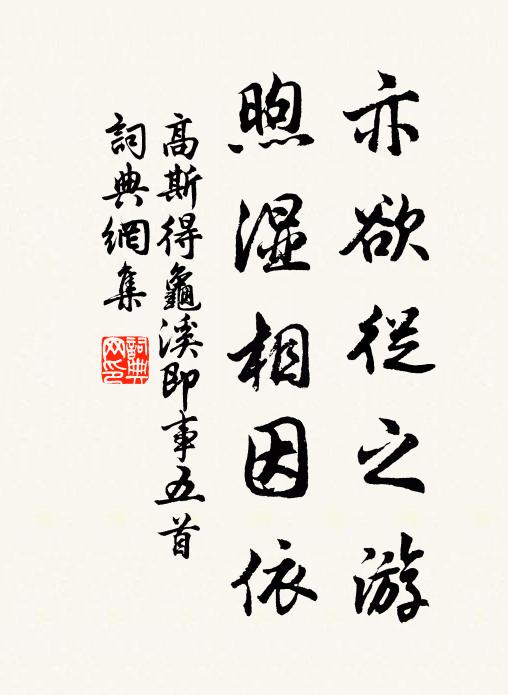 亦欲從之游
煦湿相因依
高斯得龜溪即事五首
詞典網集
詞典網印